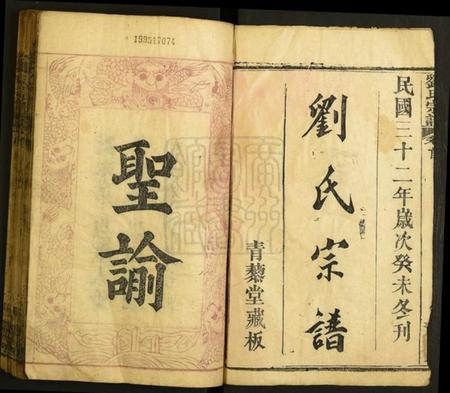 民國三十二年歲次癸未冬刊
劉氏宗譜
青藜堂藏板
聖諭
199517074
劉氏宗譜